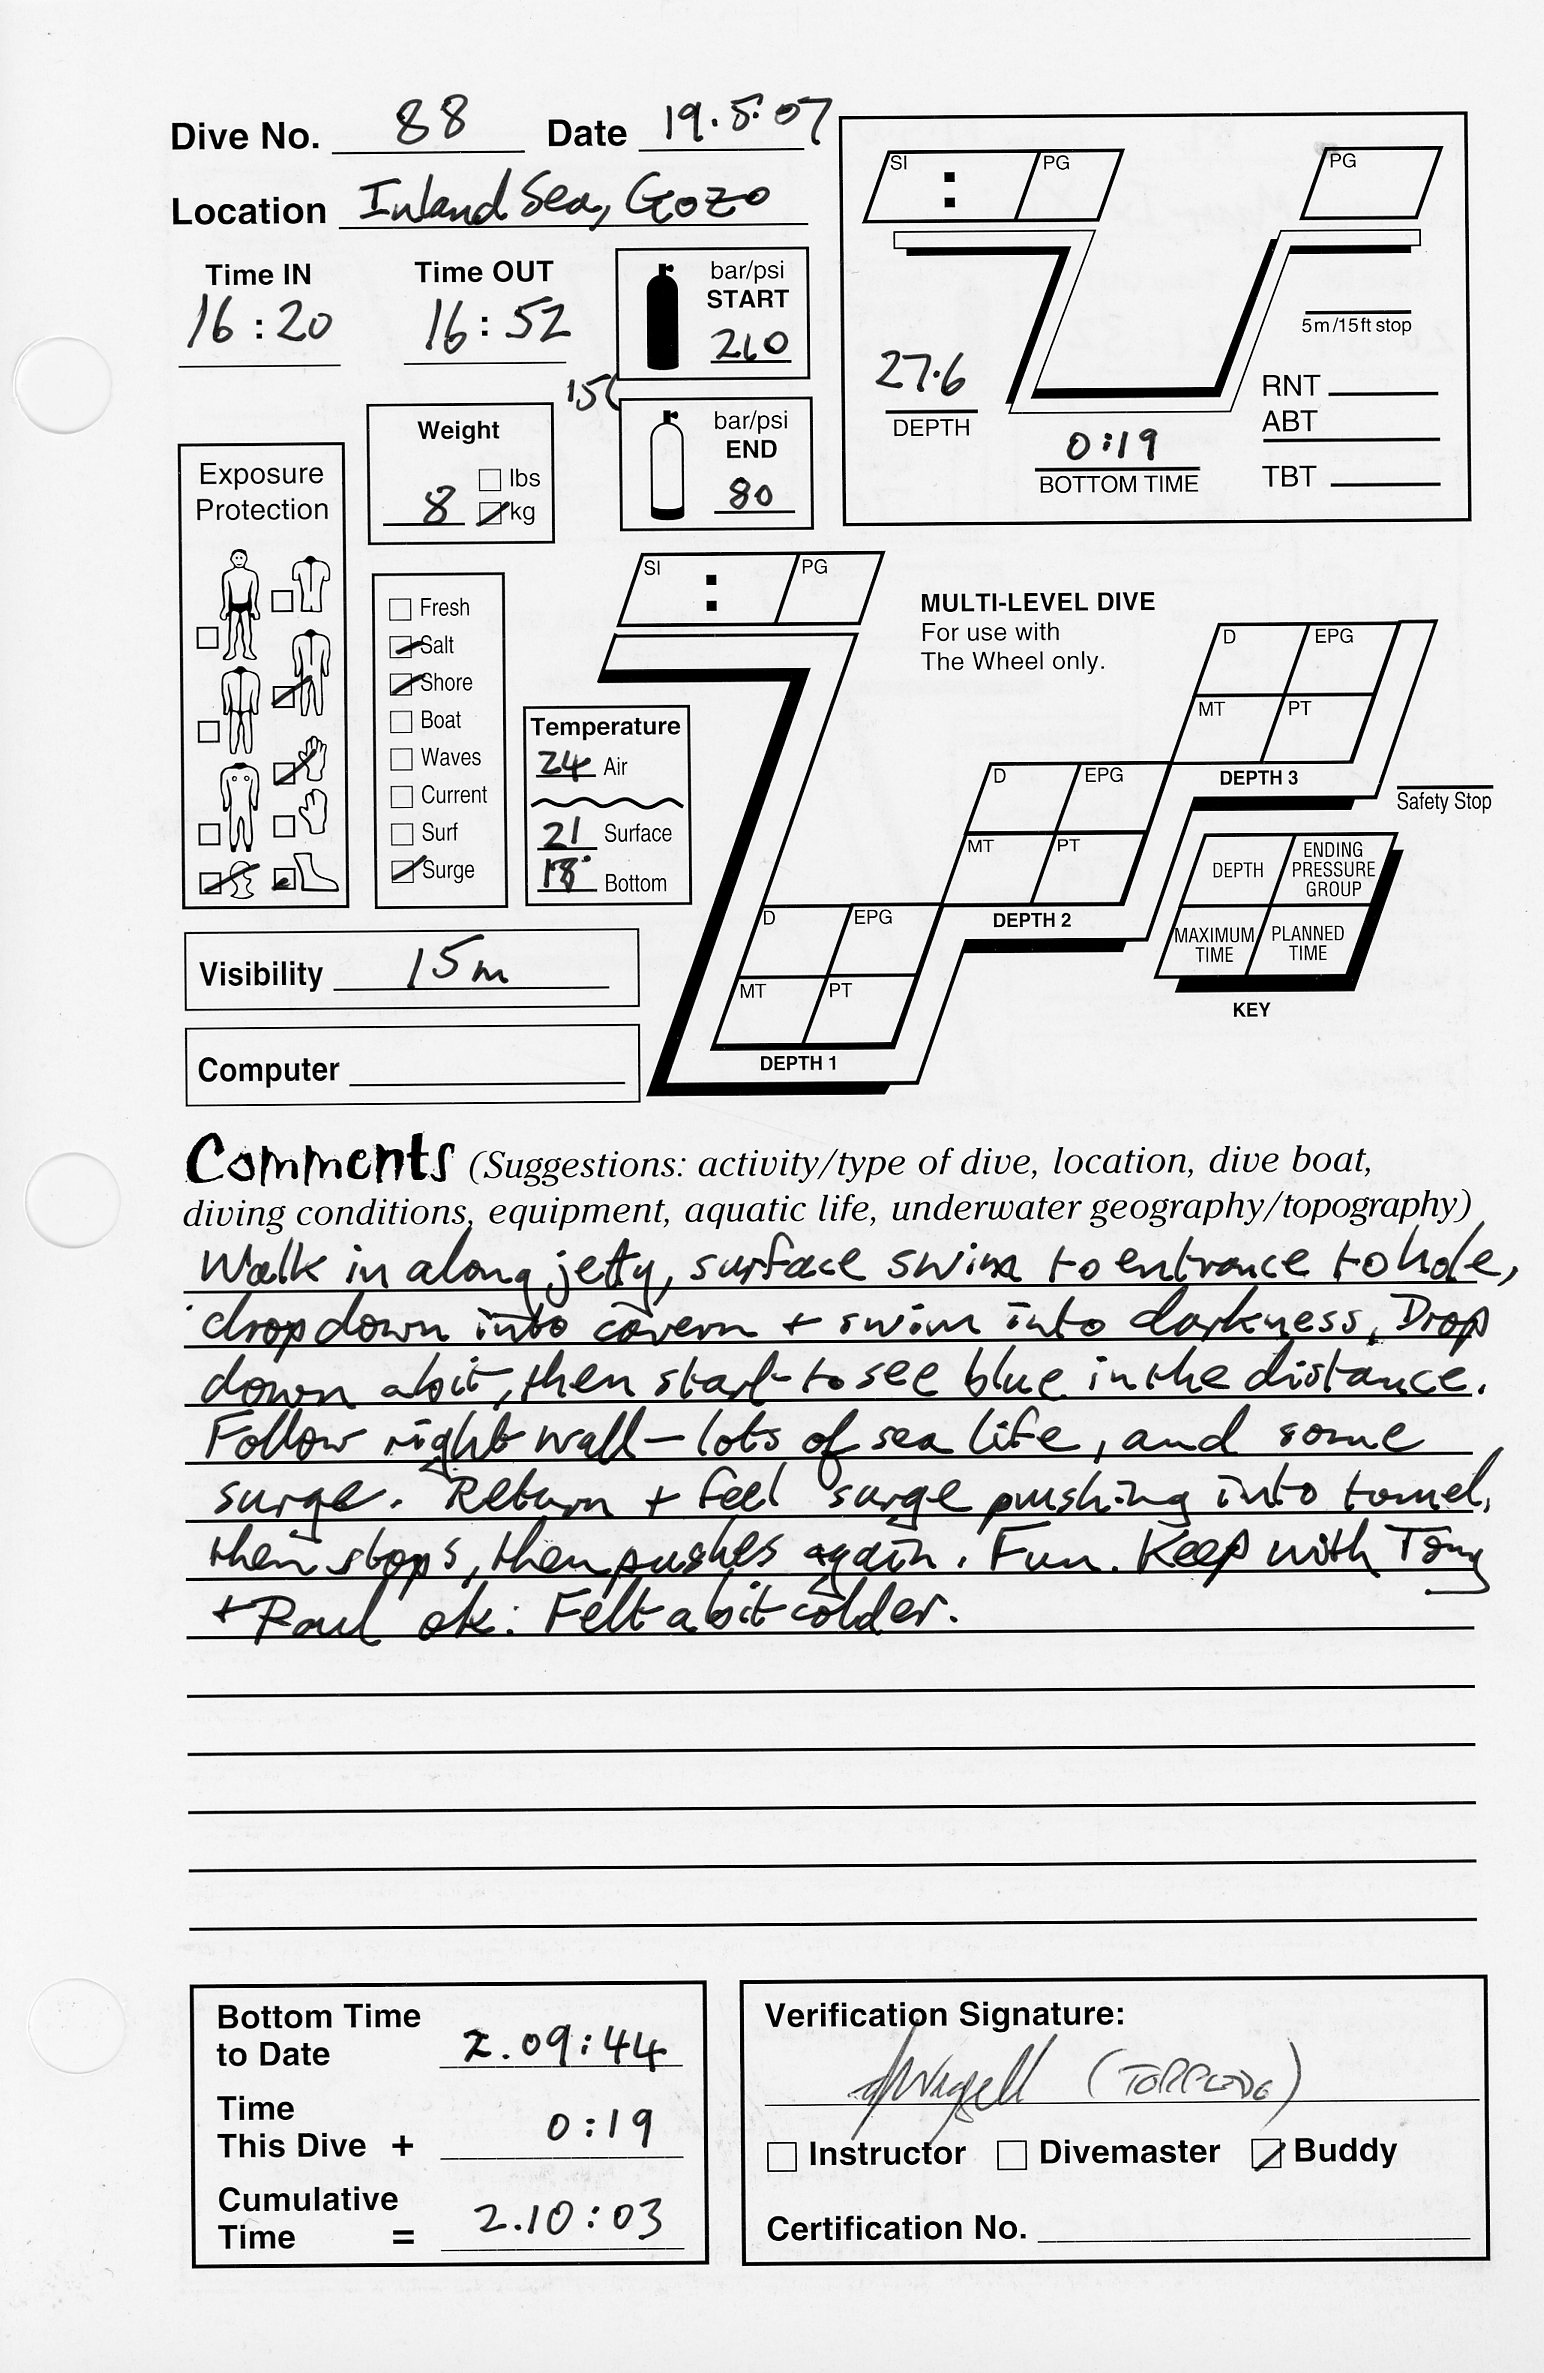 Dive No. 88 Date 19.5.07
Location Inland Sea, Gozo
Time IN Time OUT
16:20 16:52
bar/psi
START
210
bar/psi
END
80
Weight
lbs
8 kg
Exposure
Protection
Fresh
Salt
Shore
Boat
Waves
Current
Surf
Surge
Temperature
24 Air
21 Surface
18 Bottom
Visibility 15m
Computer
SI : PG
PG
27.6
DEPTH
0:19
BOTTOM TIME
5m/15ft stop
RNT
ABT
TBT
SI : PG
MULTI-LEVEL DIVE
For use with
The Wheel only.
D EPG
MT PT
DEPTH 3
Safety Stop
D EPG
MT PT
DEPTH 2
D EPG
MT PT
DEPTH 1
DEPTH
ENDING
PRESSURE
GROUP
MAXIMUM
TIME
PLANNED
TIME
KEY
Comments (Suggestions: activity/type of dive, location, dive boat,
diving conditions, equipment, aquatic life, underwater geography/topography)
Walk in along jetty, surface swim to entrance to hole,
drop down into cavern + swim into darkness. Drop
down a bit, then start to see blue in the distance.
Follow right wall – lots of sea life, and some
surge. Return + feel surge pushing into tunnel,
then stops, then pushes again. Fun. Keep with Tony
+ Paul ok. Felt a bit colder.
Bottom Time
to Date 2.09:44
Time
This Dive + 0:19
Cumulative
Time = 2.10:03
Verification Signature:
Instructor Divemaster Buddy
Certification No.